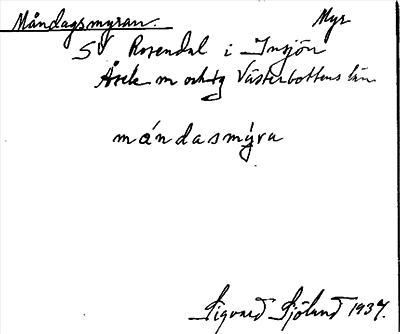 Måndagsmyran. Myr
SV Rosendal i Insjön
Åsele m och tg Västerbottens län
móndasmýra
Sigvard Sjölund 1937.